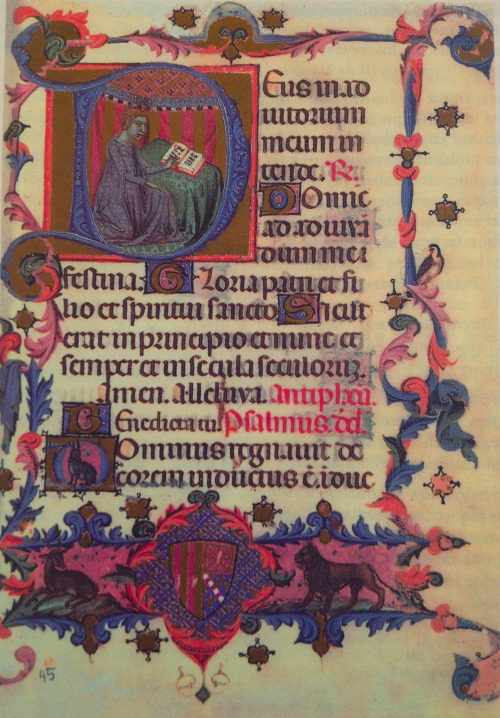 Deus in ad
iutorium
meum in
tende. R.
Domine
ad adiuuā
dum me i
festina. Gloria patri et fi
lio et spiritui sancto Sicut
erat in principio et nunc et
semper et in secula seculorꝫ.
Amen. Alleluya. Antiph̄ā.
Benedicta tu. Psalmus. dd̄.
Dominus regnauit de
corem indutus ē. iduc
45